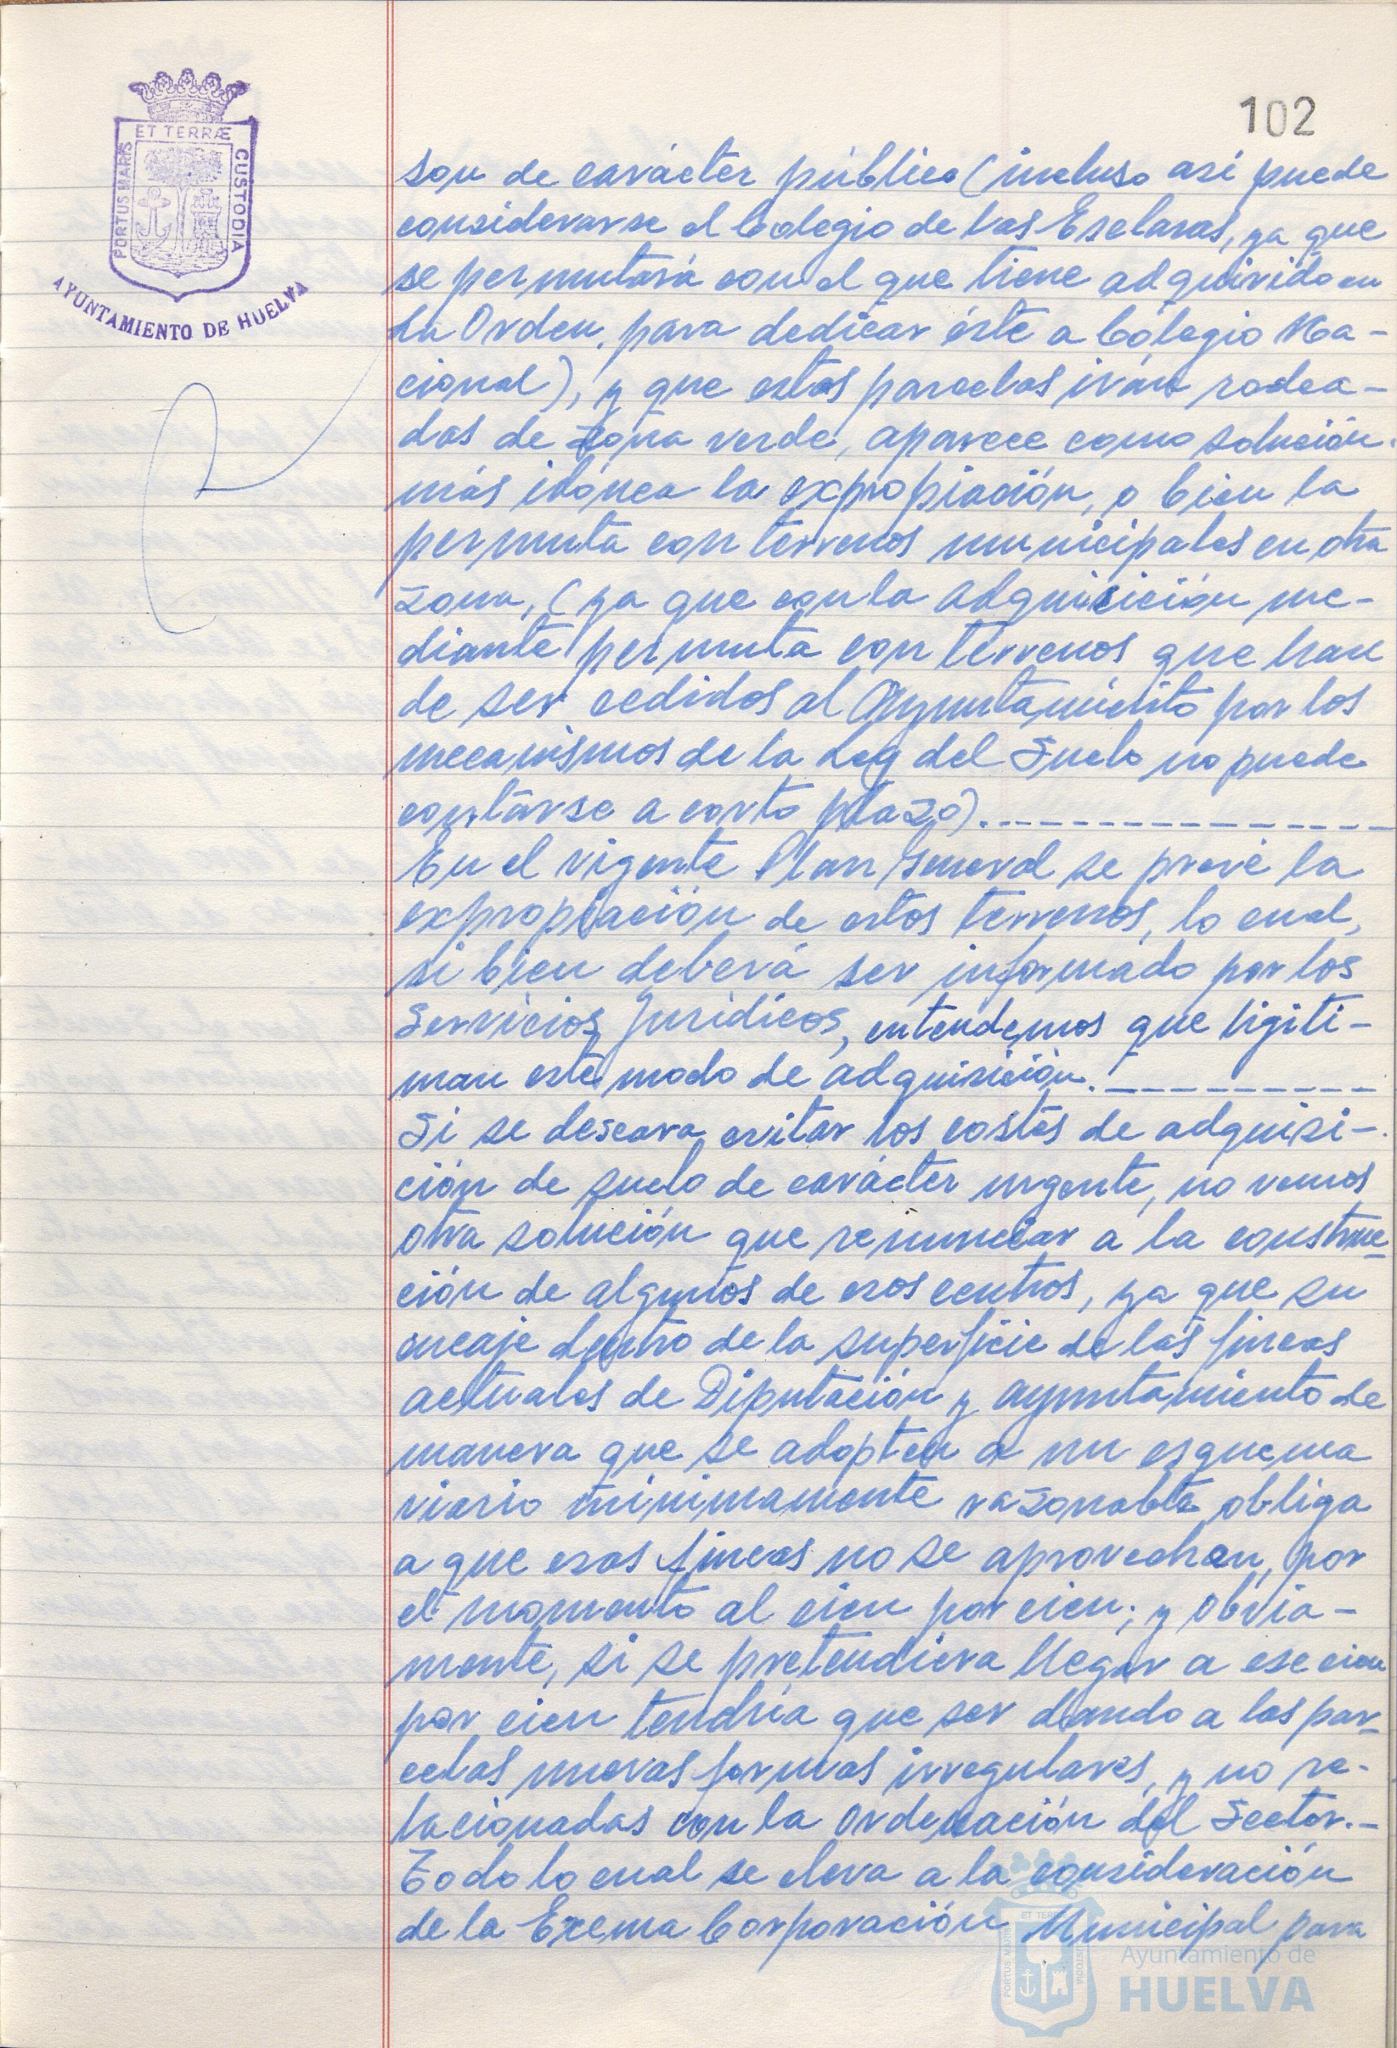 102
ET TERRÆ
PORTUS MARIS
CUSTODIA
AYUNTAMIENTO DE HUELVA
son de carácter público (incluso así puede
considerarse el Colegio de las Esclavas, ya que
se permutará con el que tiene adquirido en
La Orden, para dedicar éste a Colegio Na-
cional), y que estas parcelas irán rodea-
das de zona verde, aparece como solución
más idónea la expropiación, o bien la
permuta con terrenos municipales en otra
zona, (ya que con la adquicición me-
diante permuta con terrenos que han
de ser cedidos al Ayuntamiento por los
mecanismos de la Ley del Suelo no puede
contarse a corto plazo).
En el vigente Plan General se prevé la
expropiación de estos terrenos, lo cual,
si bien deberá ser informado por los
Servicios Jurídicos, entendemos que ligiti-
man este modo de adquisición.
Si se deseara evitar los costes de adquisi-
ción de suelo de carácter urgente, no vemos
otra solución que renunciar a la construc-
ción de algunos de esos centros, ya que su
encaje dentro de la superficie de las fincas
actuales de Diputación y Ayuntamiento de
manera que se adopten a un esquema
viario mínimamente razonable obliga
a que esas fincas no se aprovechan, por
el momento al cien por cien; y obvia-
mente, si se pretendiera llegar a ese cien
por cien tendría que ser dando a las par-
celas nuevas formas irregulares, y no re-
lacionadas con la Ordenación del Sector.-
Todo lo cual se eleva a la consideración
de la Excma Corporación Municipal para
ET TERRÆ
PORTUS MARIS
CUSTODIA
Ayuntamiento de
HUELVA